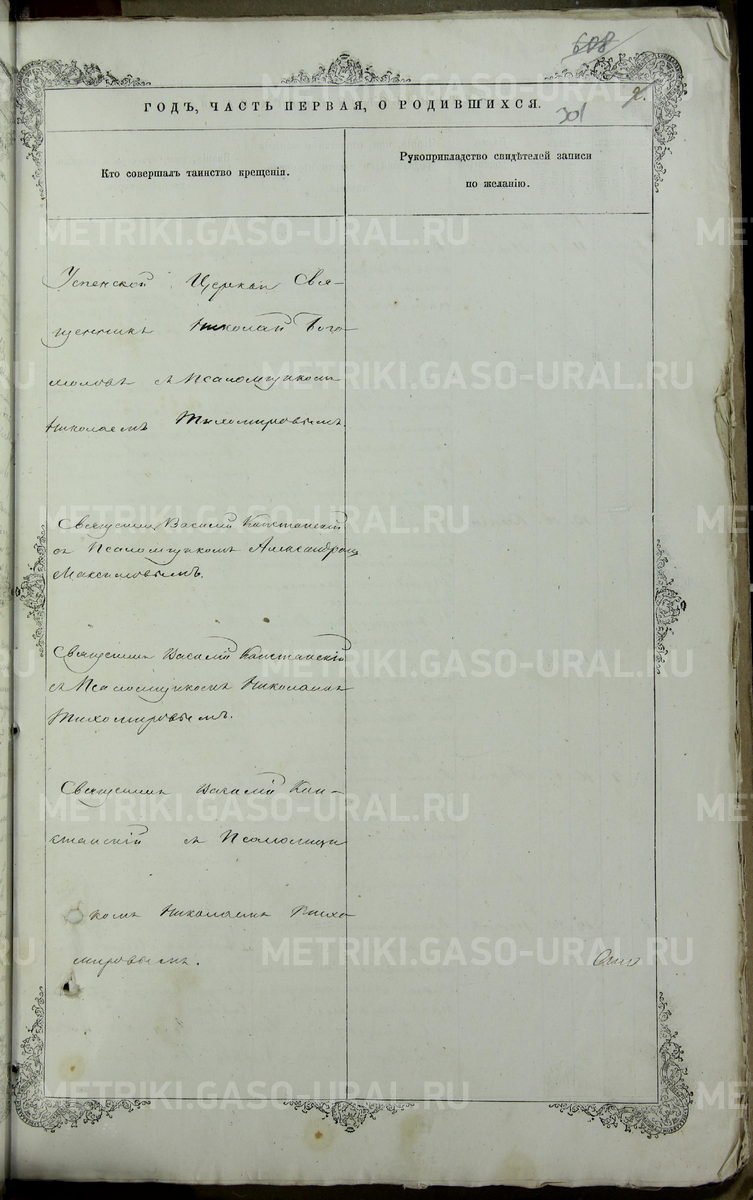 608
2.
ГОДЪ, ЧАСТЬ ПЕРВАЯ, О РОДИВШИХСЯ.
301
Кто совершалъ таинство крещенія.
Рукоприкладство свидѣтелей записи
по желанію.
Успенской Церкви Свя-
щенникъ Николай Бого-
моловъ съ Псаломщикомъ
Николаемъ Тихомировымъ.
Священникъ Василій Капстанскій
съ Псаломщикомъ Александромъ
Максимовымъ.
Священникъ Василій Капстанскій
съ Псаломщикомъ Николаемъ
Тихомировымъ.
Священникъ Василій Кап-
станскій съ Псаломщи
комъ Николаемъ Тихо-
мировымъ.
METRIKI.GASO-URAL.RU